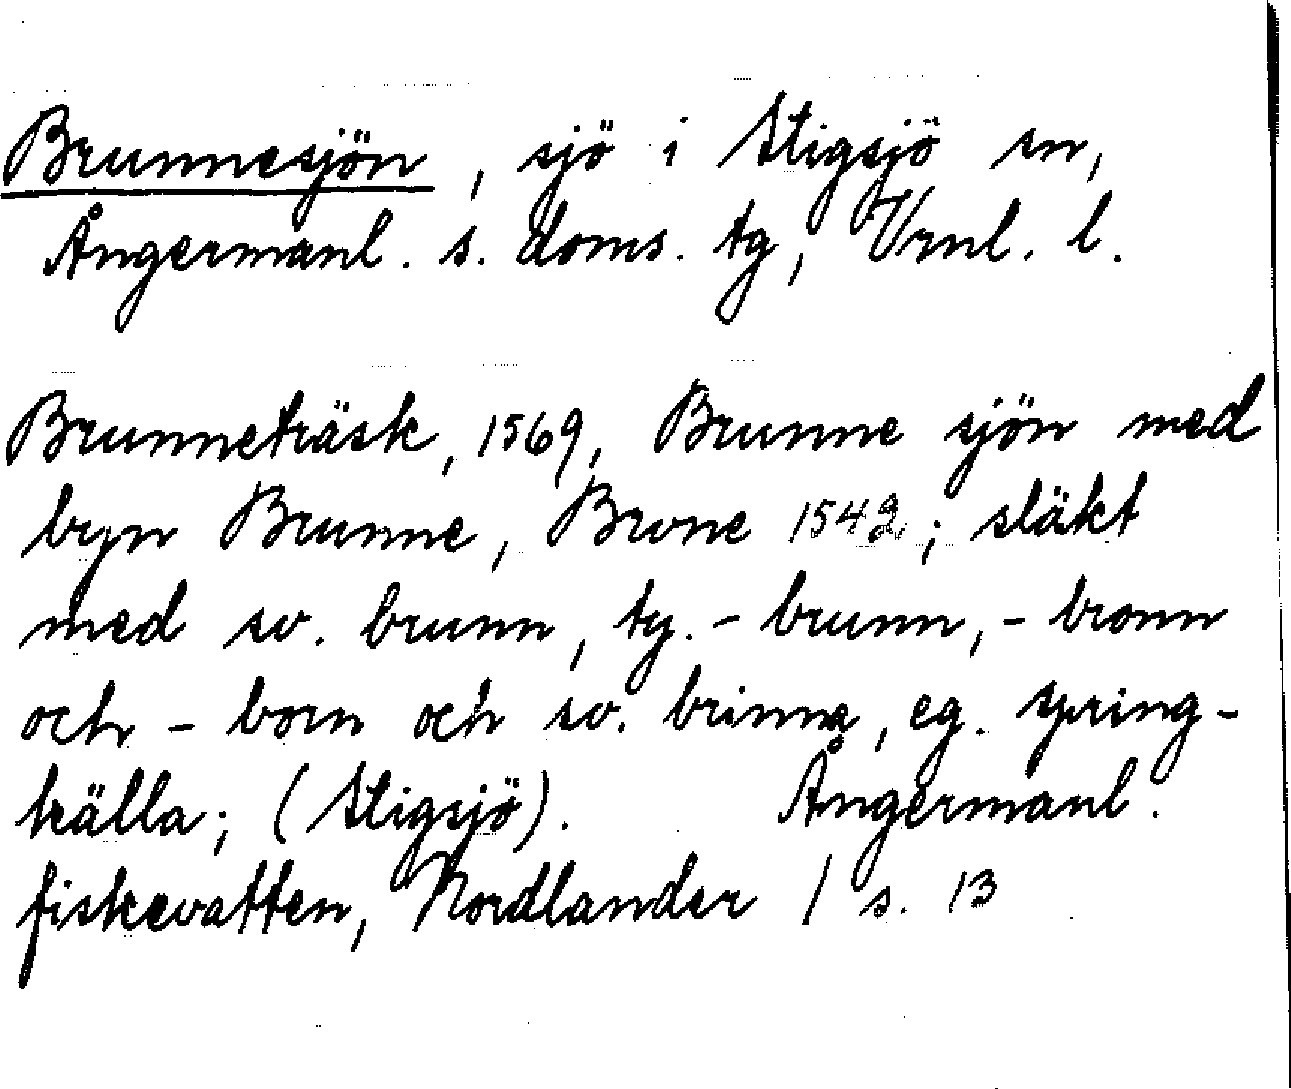 Brunnesjön, sjö i Stigsjö sn,
Ångermanl. s. doms. tg, Vrnl. l.
Brunneträsk, 1569, Brunne sjön med
byn Brunne, Brvne 1542; släkt
med sv. brunn, ty. - brunn, - bronn
och - born och sv. brinna, eg. spring-
källa; (Stigsjö). Ångermanl.
fiskevatten, Nordlander / s. 13